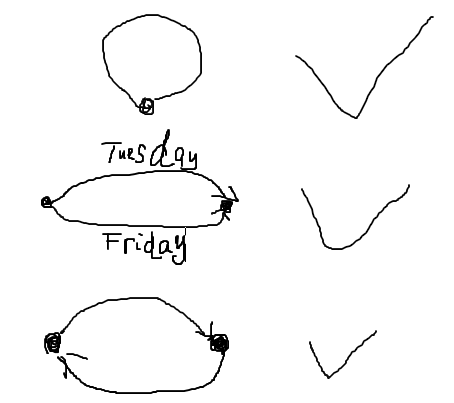 Tuesday
Friday